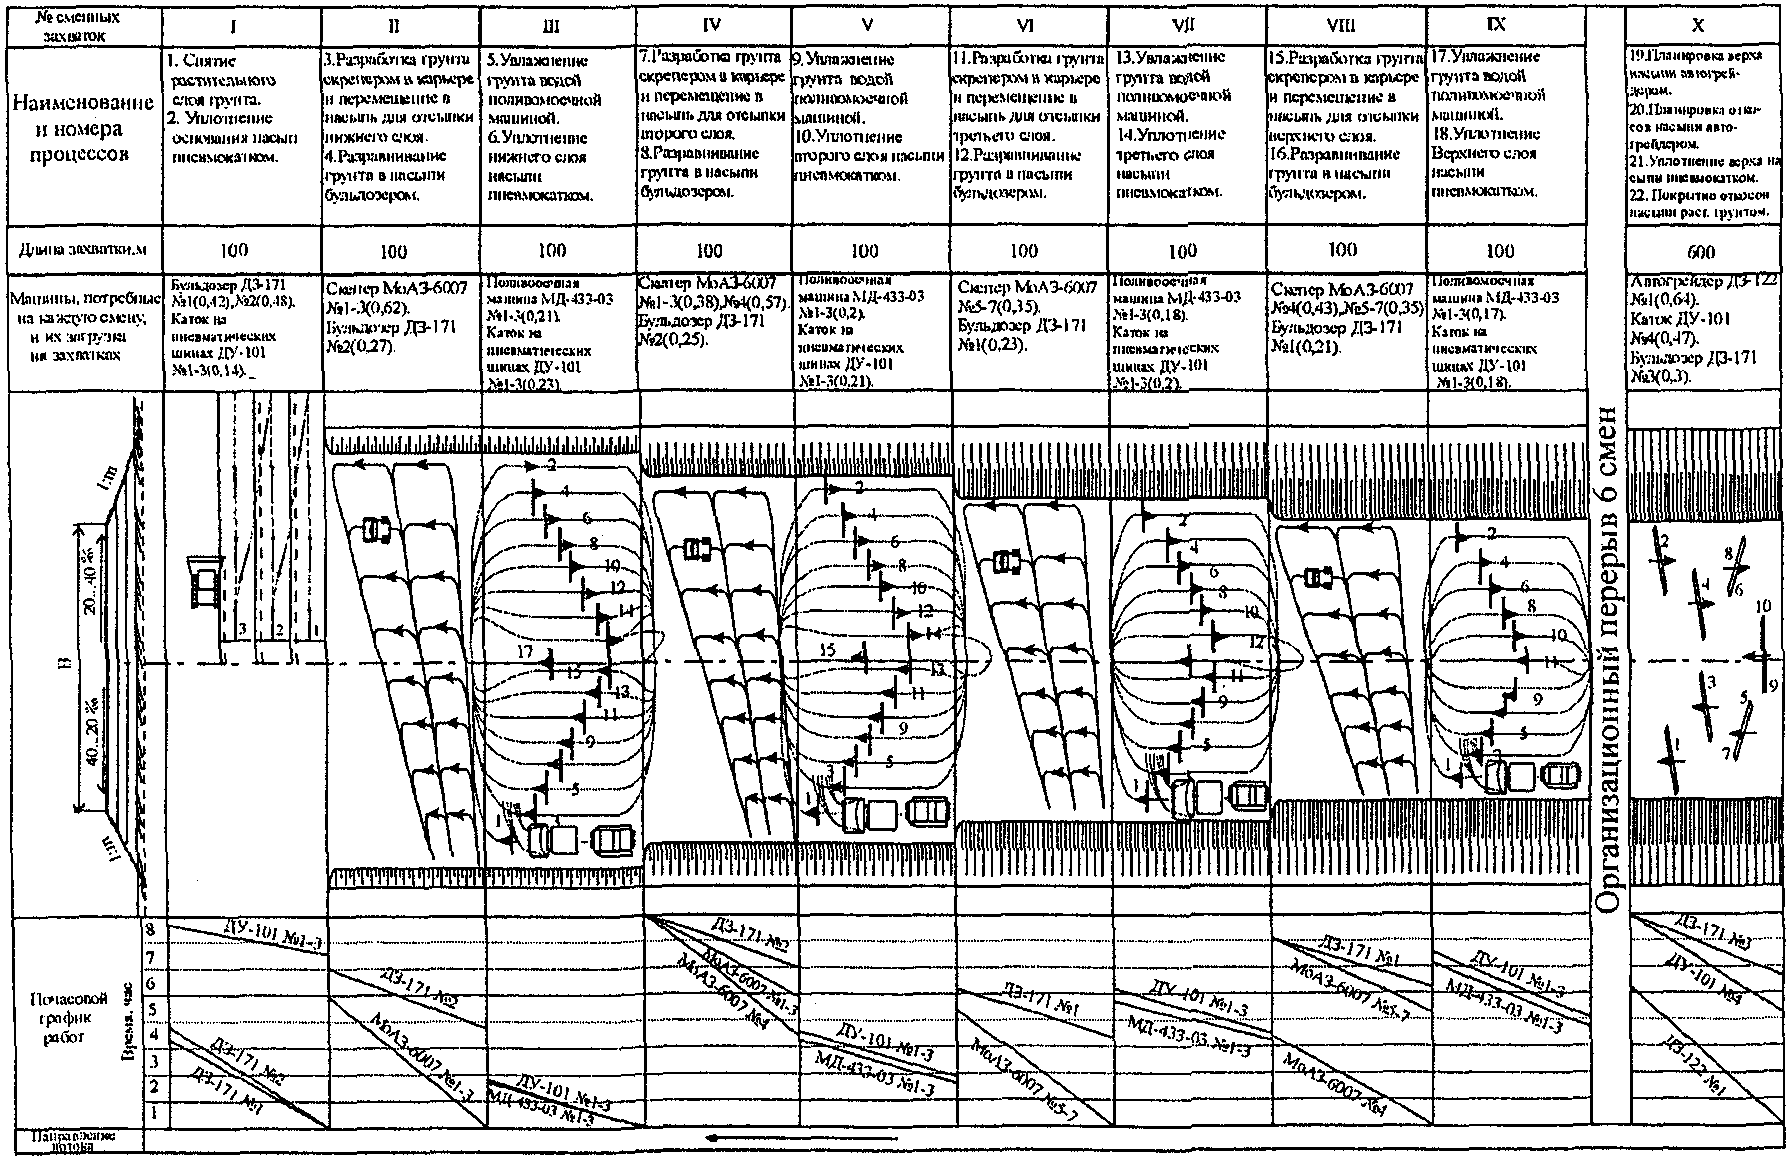 № сменных
захваток
I
II
III
IV
V
VI
VII
VIII
IX
X
Наименование
и номера
процессов
1. Снятие
растительного
слоя грунта.
2. Уплотнение
основания насыпи
пневмокатком.
3.Разработка грунта
скрепером в карьере
и перемещение в
насыпь для отсыпки
нижнего слоя.
4.Разравнивание
грунта в насыпи
бульдозером.
5.Увлажнение
грунта водой
поливомоечной
машиной.
6.Уплотнение
нижнего слоя
насыпи
пневмокатком.
7.Разработка грунта
скрепером в карьере
и перемещение в
насыпь для отсыпки
второго слоя.
8.Разравнивание
грунта в насыпи
бульдозером.
9.Увлажнение
грунта водой
поливомоечной
машиной.
10.Уплотнение
второго слоя насыпи
пневмокатком.
11.Разработка грунта
скрепером в карьере
и перемещение в
насыпь для отсыпки
третьего слоя.
12.Разравнивание
грунта в насыпи
бульдозером.
13.Увлажнение
грунта водой
поливомоечной
машиной.
14.Уплотнение
третьего слоя
насыпи
пневмокатком.
15.Разработка грунта
скрепером в карьере
и перемещение в
насыпь для отсыпки
верхнего слоя.
16.Разравнивание
грунта в насыпи
бульдозером.
17.Увлажнение
грунта водой
поливомоечной
машиной.
18.Уплотнение
Верхнего слоя
насыпи
пневмокатком.
19.Планировка верха
насыпи автогрей-
дером.
20.Планировка отко-
сов насыпи авто-
грейдером.
21.Уплотнение верха на
сыпи пневмокатком.
22. Покрытие откосов
насыпи раст. грунтом.
Длина захватки,м
100
100
100
100
100
100
100
100
100
600
Машины, потребные
на каждую смену,
и их загрузка
на захватках
Бульдозер ДЗ-171
№1(0,42),№2(0,48).
Каток на
пневматических
шинах ДУ-101
№1-3(0,14).
Скепер МоАЗ-6007
№1-3(0,62).
Бульдозер ДЗ-171
№2(0,27).
Поливооечная
машина МД-433-03
№1-3(0,21).
Каток на
пневматических
шинах ДУ-101
№1-3(0,23).
Скепер МоАЗ-6007
№1-3(0,38),№4(0,57).
Бульдозер ДЗ-171
№2(0,25).
Поливооечная
машина МД-433-03
№1-3(0,2).
Каток на
пневматических
шинах ДУ-101
№1-3(0,21).
Скепер МоАЗ-6007
№5-7(0,35).
Бульдозер ДЗ-171
№1(0,23).
Поливооечная
машина МД-433-03
№1-3(0,18).
Каток на
пневматических
шинах ДУ-101
№1-3(0,2).
Скепер МоАЗ-6007
№4(0,43),№5-7(0,35)
Бульдозер ДЗ-171
№1(0,21).
Поливомоечная
машина МД-433-03
№1-3(0,17).
Каток на
пневматических
шинах ДУ-101
№1-3(0,18).
Автогрейдер ДЗ-122
№1(0,64).
Каток ДУ-101
№4(0,47).
Бульдозер ДЗ-171
№3(0,3).
1:m
20...40 ‰
В
40...20 ‰
1:m
3 2 1
2
4
6
8
10
12
14
17
15
13
11
9
5
1
2
4
6
8
10
12
14
15
13
11
9
5
3
1
2
4
6
8
10
12
11
9
5
1
2
4
6
8
10
11
9
5
1
Организационный перерыв 6 смен
2
8
4
6
10
3
5
9
1
7
Почасовой
график
работ
Время, час
8
7
6
5
4
3
2
1
ДУ-101 №1-3
ДЗ-171 №2
ДЗ-171 №1
ДЗ-171 №2
МоАЗ-6007 №1-3
ДУ-101 №1-3
МД-433-03 №1-3
ДЗ-171 №2
МоАЗ-6007 №1-3
МоАЗ-6007 №4
ДУ-101 №1-3
МД-433-03 №1-3
ДЗ-171 №1
МоАЗ-6007 №5-7
ДУ-101 №1-3
МД-433-03 №1-3
ДЗ-171 №1
МоАЗ-6007 №5-7
МоАЗ-6007 №4
ДУ-101 №1-3
МД-433-03 №1-3
ДЗ-171 №3
ДУ-101 №4
ДЗ-122 №1
Направление
потока